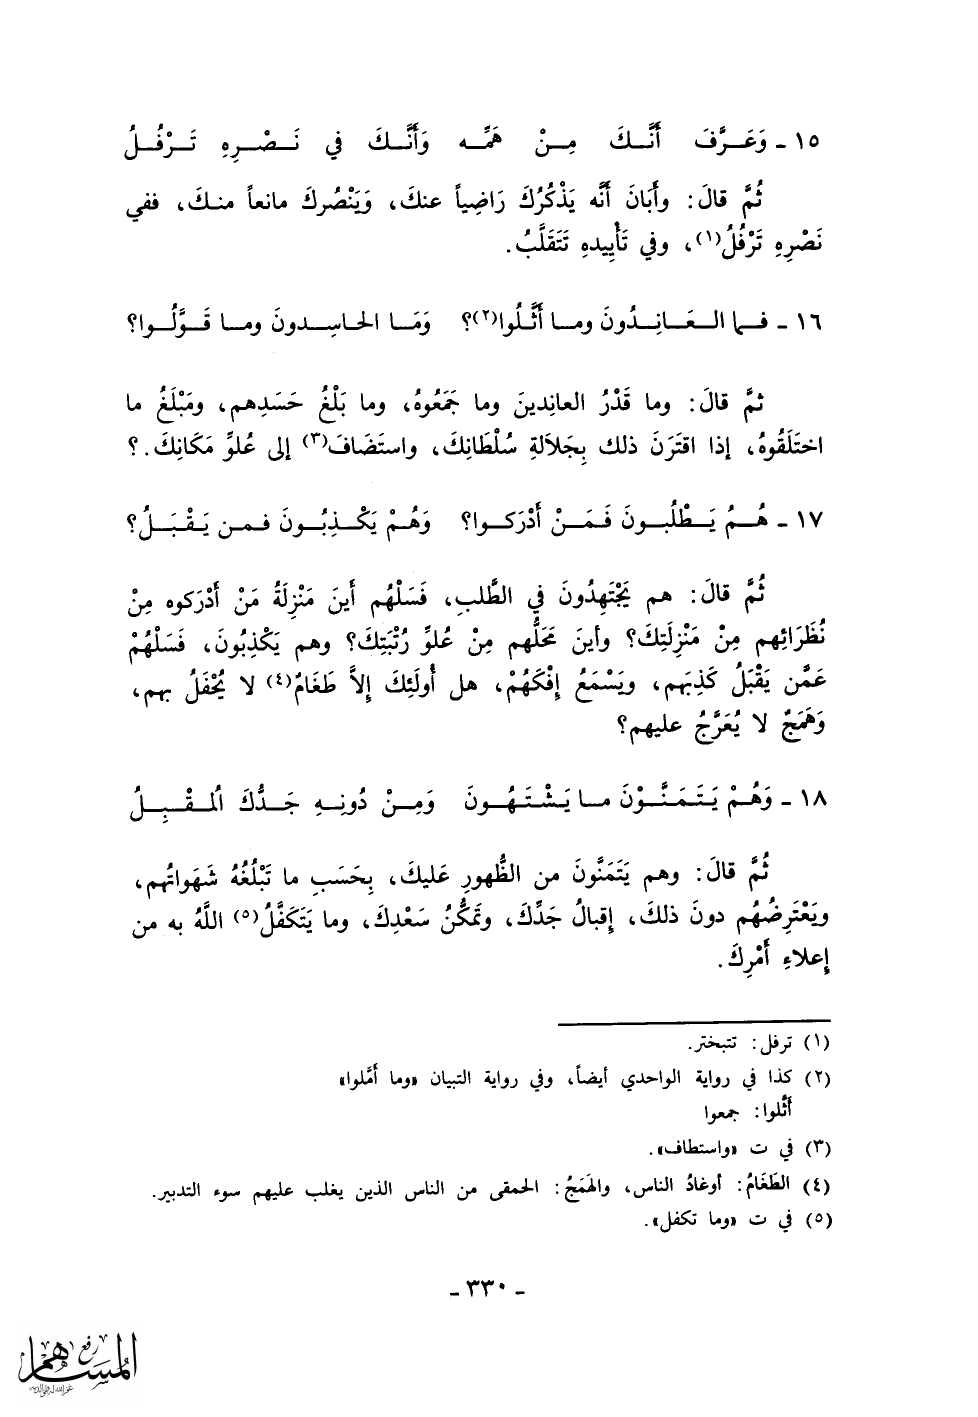 ١٥ ـ وَعَـرَّفَ أَنَّـكَ مِـنْ هَمِّـه وَأَنَّـكَ في نَـصْـرِهِ تَـرْفُـلُ
ثُمَّ قالَ: وأَبَانَ أَنَّه يَذْكُرُكَ رَاضِياً عنكَ، وَيَنْصُركَ مانعاً منـكَ، ففي
نَصْرِهِ تَرْفُلُ(١)، وفي تَأْيِيدهِ تَتَقَلَّبُ.
١٦ ـ فـما الـعَـانِـدُونَ ومـا أَثَّلُوا(٢)؟ وَمَـا الحاسِـدونَ ومـا قَـوَّلُـوا؟
ثمَّ قالَ: وما قَدْرُ العانِدينَ وما جَمَعُوهُ، وما بَلْغُ حَسَدِهم، ومَبْلَغُ ما
اختَلَقُوهُ، إذا اقتَرَنَ ذلك بِجَلاَلةِ سُلْطَانِكَ، واستَضَافَ(٣) إلى عُلوِّ مَكَانِكَ.؟
١٧ ـ هُـمُ يَـطْلُبـونَ فَـمَـنْ أَدْرَكـوا؟ وَهُـمْ يَكْـذِبُـونَ فـمن يَـقْـبَـلُ؟
ثُمَّ قالَ: هم يَجْتَهِدُونَ في الطَّلبِ، فَسَلْهُم أَينَ مَنْزِلَةُ مَنْ أَدْرَكوه مِنْ
نُظَرَائِهم مِنْ مَنْزِلَتِكَ؟ وأَينَ مَحَلُّهم مِنْ عُلوِّ رُتْبَتِكَ؟ وهم يَكْذِبُونَ، فَسَلْهُمْ
عَمَّن يَقْبَلُ كَذِبَهم، ويَسْمَعُ إِفْكَهُمْ، هل أُولَئِكَ إِلاَّ طَغَامٌ(٤) لا يُحْفَلُ بهم،
وَهَمَجٌ لا يُعَرَّجُ عليهم؟
١٨ ـ وَهُـمْ يَـتَـمَـنَّـوْنَ مـا يَـشْـتَـهُـونَ وَمِـنْ دُونِـهِ جَـدُّكَ اُلمـقْـبِـلُ
ثُمَّ قالَ: وهم يَتَمَنَّونَ من الظُّهورِ عَليكَ، بِحَسَبِ ما تَبْلُغُهُ شَهَواتُهم،
ويَعْتَرِضُهُم دونَ ذلكَ، إِقبالُ جَدِّكَ، وتَمَكُّنُ سَعْدِكَ، وما يَتَكَفَّلُ(٥) اللَّهُ به من
إعلاءِ أَمْرِكَ.
(١) ترفل: تتبختر.
(٢) كذا في رواية الواحدي أيضاً، وفي رواية التبيان «وما أَمَّلوا»
أثَّلوا: جمعوا
(٣) في ت «واستطاف».
(٤) الطَغَامُ: أوغادُ الناس، والهَمَجُ: الحمقى من الناس الذين يغلب عليهم سوء التدبير.
(٥) في ت «وما تكفل».
ـ ٣٣٠ ـ
رفع